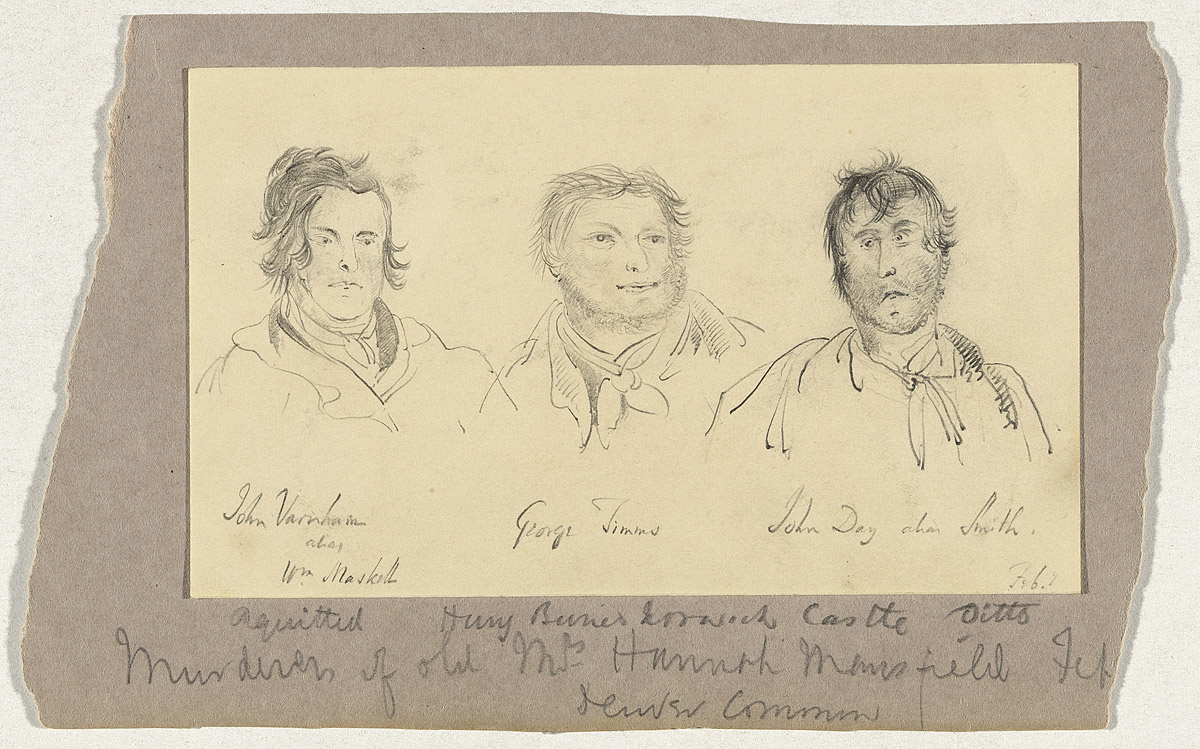 John Varnham George Timms John Day alias Smith.
alias
Wm Maskell
Feb.
aquitted Hung Buried Norwich Castle Ditto
Murderers of old Mrs Hannah Mansfield Feb
Denver Common